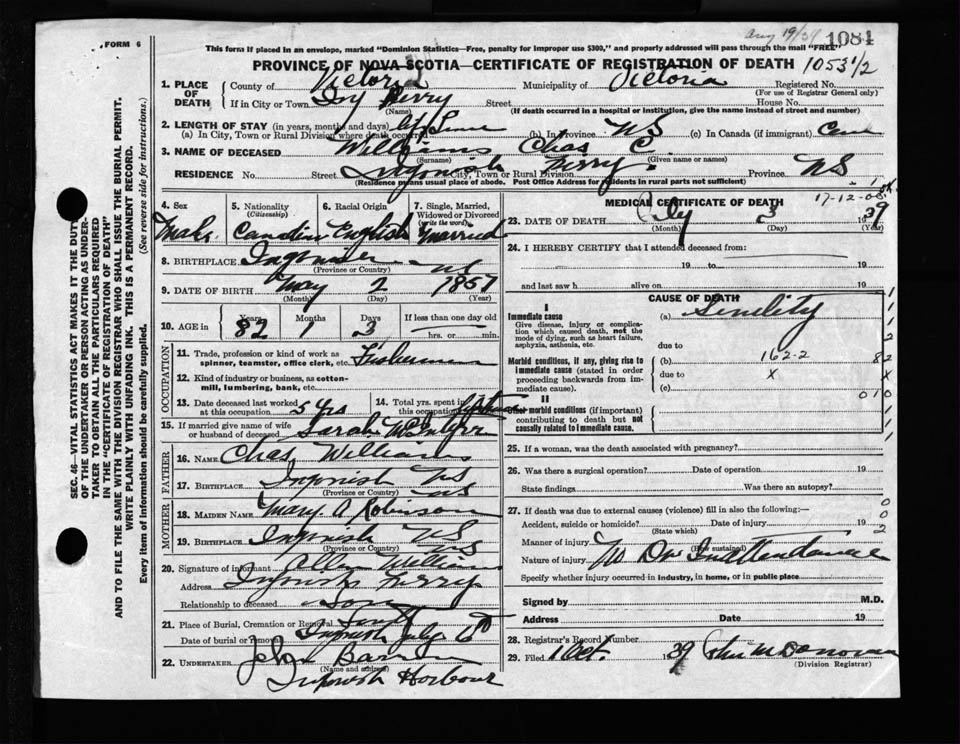 Aug 19/39
1084
FORM 6
This form if placed in an envelope, marked "Dominion Statistics—Free, penalty for improper use $300," and properly addressed will pass through the mail "FREE"
PROVINCE OF NOVA SCOTIA—CERTIFICATE OF REGISTRATION OF DEATH 1053 1/2
1. PLACE OF DEATH County of Victoria Municipality of Victoria Registered No.
(For use of Registrar General only)
If in City or Town Ferry Street House No.
(Name) (If death occurred in a hospital or institution, give the name instead of street and number)
2. LENGTH OF STAY (in years, months and days)
(a) In City, Town or Rural Division where death occurred life time (b) In Province NS (c) In Canada (if immigrant)
3. NAME OF DECEASED Williams Chas C.
(Surname) (Given name or names)
RESIDENCE No. Street Ingonish Ferry City, Town or Rural Division Province NS
(Residence means usual place of abode. Post Office Address for residents in rural parts not sufficient)
SEC. 46—VITAL STATISTICS ACT MAKES IT THE DUTY
OF THE UNDERTAKER OR PERSON ACTING AS UNDER-
TAKER TO OBTAIN ALL THE PARTICULARS REQUIRED
IN THE "CERTIFICATE OF REGISTRATION OF DEATH"
AND TO FILE THE SAME WITH THE DIVISION REGISTRAR WHO SHALL ISSUE THE BURIAL PERMIT.
WRITE PLAINLY WITH UNFADING INK. THIS IS A PERMANENT RECORD.
Every item of information should be carefully supplied. (See reverse side for instructions.)
4. Sex 5. Nationality (Citizenship) 6. Racial Origin 7. Single, Married, Widowed or Divorced (write the word)
Male Canadian English Married
8. BIRTHPLACE NS
(Province or Country)
9. DATE OF BIRTH May 2 1857
(Month) (Day) (Year)
10. AGE in Years Months Days If less than one day old
82 1 3 hrs. or min.
OCCUPATION
11. Trade, profession or kind of work as spinner, teamster, office clerk, etc. Fisherman
12. Kind of industry or business, as cotton-mill, lumbering, bank, etc.
13. Date deceased last worked at this occupation 5 yrs 14. Total yrs. spent in this occupation
15. If married give name of wife or husband of deceased Sarah McIntyre
FATHER
16. NAME Chas Williams
17. BIRTHPLACE Ingonish NS
(Province or Country) NS
MOTHER
18. MAIDEN NAME Mary A Robinson
19. BIRTHPLACE Ingonish NS
(Province or Country) NS
20. Signature of informant Williams
Address Ingonish Ferry
Relationship to deceased Son
21. Place of Burial, Cremation or Removal
Date of burial or removal Ingonish July 6th
22. UNDERTAKER John
(Name and address)
Ingonish Harbour
MEDICAL CERTIFICATE OF DEATH 17-12-08
23. DATE OF DEATH July 3 1939
(Month) (Day)
24. I HEREBY CERTIFY that I attended deceased from:
19 to 19
and last saw h alive on 19
CAUSE OF DEATH
I
Immediate cause (a) Senility
Give disease, injury or complication which caused death, not the mode of dying, such as heart failure, asphyxia, asthenia, etc.
due to
Morbid conditions, if any, giving rise to immediate cause (stated in order proceeding backwards from immediate cause). (b) 162-2
due to X
(c)
II
Other morbid conditions (if important) contributing to death but not causally related to immediate cause.
25. If a woman, was the death associated with pregnancy?
26. Was there a surgical operation? Date of operation 19
State findings Was there an autopsy?
27. If death was due to external causes (violence) fill in also the following:—
Accident, suicide or homicide? Date of injury 19
(State which)
Manner of injury
(How sustained)
Nature of injury No Dr In attendance
Specify whether injury occurred in industry, in home, or in public place
Signed by M.D.
Address Date 19
28. Registrar's Record Number
29. Filed 1 Oct. 1939
(Division Registrar)